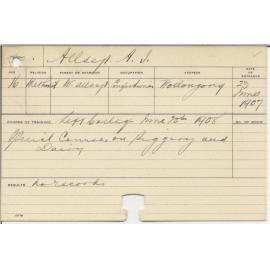 Allsep A. J.
AGE RELIGION PARENT OR GUARDIAN OCCUPATION ADDRESS DATE OF ENTRANCE
16 Method W. Allsep Confectioner Wollongong 25 June 1907
COURSE OF TRAINING Left College June 20th 1908
Special Course on Piggery and
Dairy
RESULTS No records